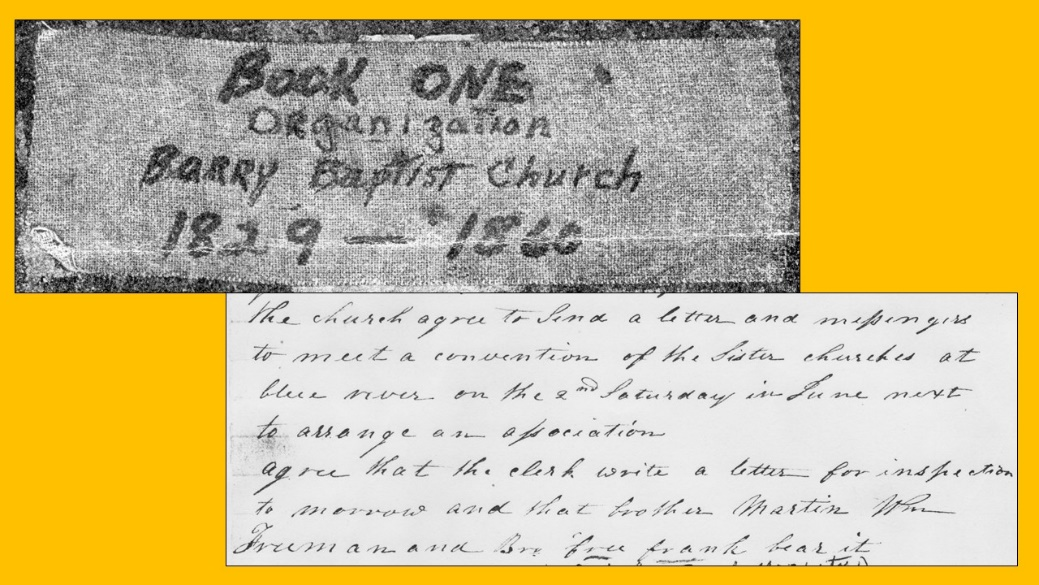 BOOK ONE
Organization
BARRY Baptist Church
1829 — 1860
the church agree to Send a letter and messengers
to meet a convention of the Sister churches at
blue river on the 2nd Saturday in June next
to arrange an association
agree that the clerk write a letter for inspection
to morrow and that brother Martin Wm
Freeman and Bro free frank bear it